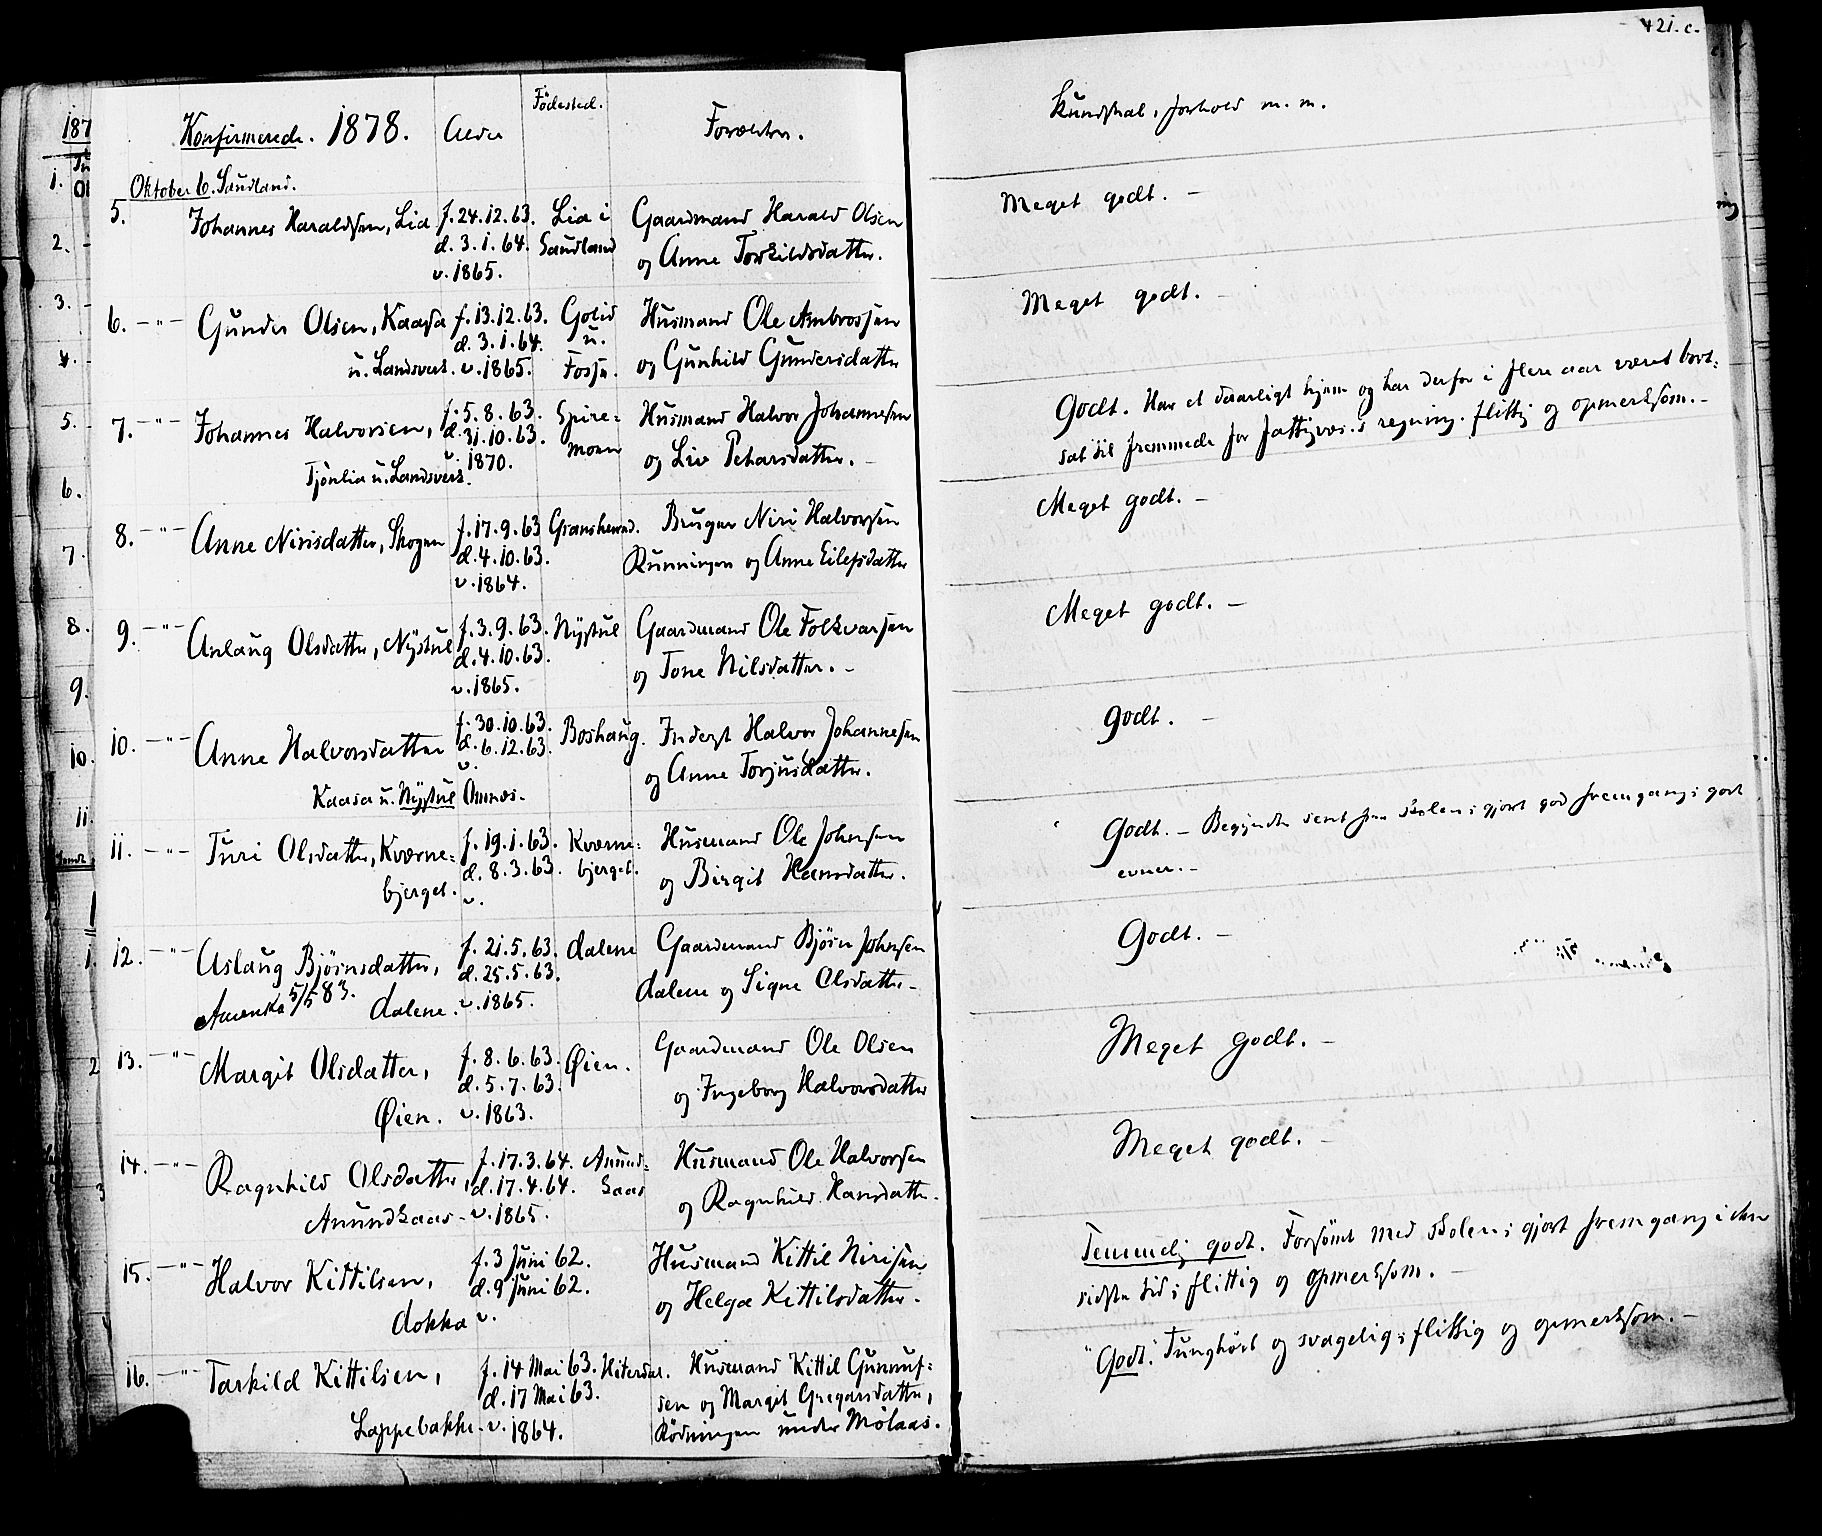 421.c.
Konfirmerede. 1878. Alder Fødested. Forældre. Kundskab, forhold m. m.
Oktober 6. Sauland.
5. Johannes Haraldsen, Lia f. 24.12.63. Lia i Gaardmand Harald Olsen Meget godt. —
d. 3.1.64. Sauland og Anne Torkildsdatter.
v. 1865.
6. —"— Gunder Olsen, Kaasa f. 13.12.63. Golid Husmand Ole Ambrossen Meget godt. —
d. 3.1.64. u. og Gunhild Gundersdatter
u. Landsverk. v. 1865. Fossu.
7. —"— Johannes Halvorsen, f. 5.8.63. Spire= Husmand Halvor Johannesen Godt. Har et daarligt hjem og har derfor i flere aar været bort:
d. 31.10.63. moen og Liv Petersdatter. — sat til fremmede for fattigvæs.s regning. flittig og opmerksom. —
Tjønlia u. Landsverk. v. 1870.
8. —"— Anne Nirisdatter, Skogen f. 17.9.63 Gransherred. Bruger Niri Halvorsen Meget godt. —
d. 4.10.63. Runningen og Anne Eilefsdatter
v. 1864.
9. —"— Anlaug Olsdatter, Nystul f. 3.9.63. Nystul Gaardmand Ole Folkvarsen Meget godt. —
d. 4.10.63. og Tone Nilsdatter. —
v. 1865.
10. —"— Anne Halvorsdatter f. 30.10.63. Boshaug. Inderst Halvor Johannesen Godt. —
d. 6.12.63. og Anne Torjusdatter.
v.
Kaasa u. Nystul Omnæs.
11. —"— Turi Olsdatter, Kværne= f. 19.1.63. Kværne= Husmand Ole Johnsen Godt. — Begyndte sent paa skolen; gjort god fremgang; godt
bjerget. d. 8.3.63. bjerget. og Birgit Hansdatter. evner. —
v.
12. —"— Aslaug Bjørnsdatter, f. 21.5.63. Dalene Gaardmand Bjørn Johnsen Godt. —
Amerika 5/5 83. Dalene. d. 25.5.63. Dalene og Signe Olsdatter —
v. 1865.
13. —"— Margit Olsdatter, f. 8.6.63. Øien. Gaardmand Ole Olsen Meget godt. —
d. 5.7.63. og Ingeborg Halvorsdatter
Øien. v. 1863.
14. —"— Ragnhild Olsdatter, f. 17.3.64. Amund= Husmand Ole Halvorsen Meget godt. —
d. 17.4.64. saas og Ragnhild Hansdatter.
Amundsaas — v. 1865.
15. —"— Halvor Kittilsen, f. 3 Juni 62. Husmand Kittil Nirisen Temmelig godt. Forsømt med skolen; gjort fremgang i den
d. 9 Juni 62. og Helga Kittilsdatter. sidste tid; flittig og opmerksom. —
Dokka v.
16. —"— Tarkild Kittilsen, f. 14 Mai 63. Hiterdal. Husmand Kittil Gunnuf= "Godt". Tunghørt og svagelig; flittig og opmerksom. —
d. 17 Mai 63. sen og Margit Gregarsdatter,
Lappebakke — v. 1864. Rødningen under Mølaas.